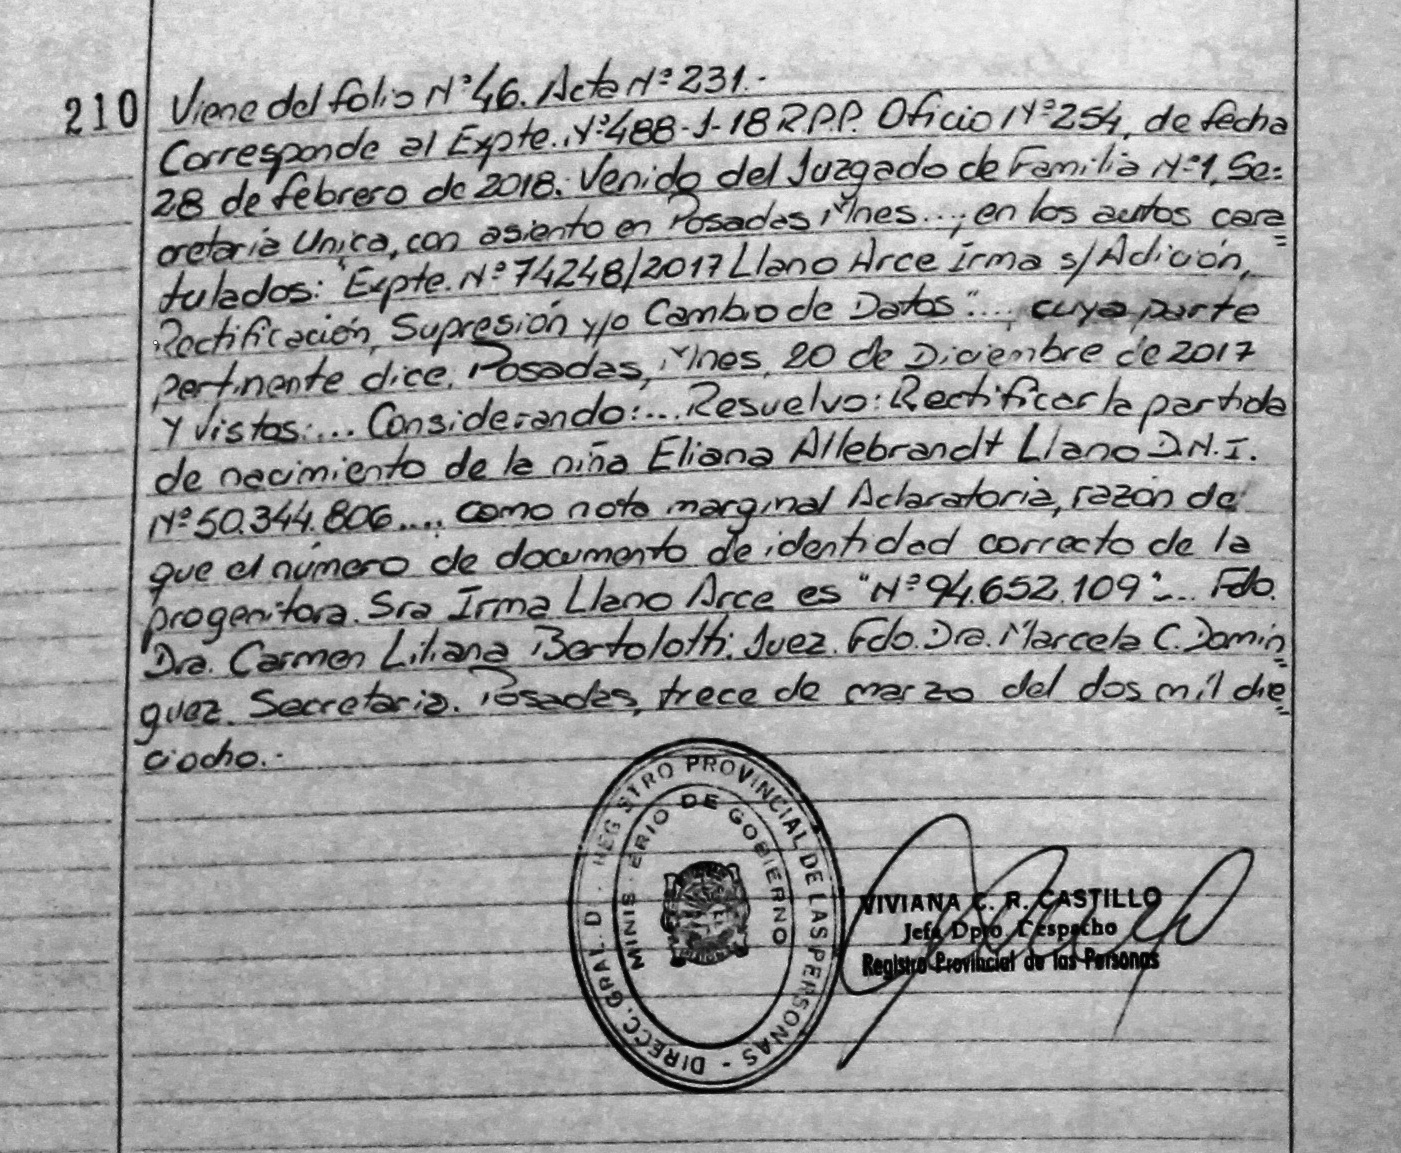 210
Viene del folio Nº 46. Acta Nº 231.-
Corresponde al Expte. Nº 488-J-18 R.P.P. Oficio Nº 254, de fecha
28 de febrero de 2018. Venido del Juzgado de Familia Nº 1, Se=
cretaría Unica, con asiento en Posadas Mnes...; en los autos cara=
tulados: "Expte. Nº 74248/2017 Llano Arce Irma s/Adición,
Rectificación, Supresión y/o Cambio de Datos"..., cuya parte
pertinente dice. Posadas, Mnes, 20 de Diciembre de 2017
Y Vistos:... Considerando:... Resuelvo: Rectificar la partida
de nacimiento de la niña Eliana Allebrandt Llano D.N.I.
Nº 50.344.806.... como nota marginal Aclaratoria, razón de
que el número de documento de identidad correcto de la
progenitora. Sra Irma Llano Arce es "Nº 94.652.109"... Fdo.
Dra. Carmen Liliana Bertolotti. Juez. Fdo. Dra. Marcela C. Domin=
guez. Secretaria. Posadas, trece de marzo del dos mil die=
ciocho.-
DIRECC. GRAL. D REGISTRO PROVINCIAL DE LAS PERSONAS -
MINISTERIO DE GOBIERNO
VIVIANA C. R. CASTILLO
Jefa Dpto. Despacho
Registro Provincial de las Personas